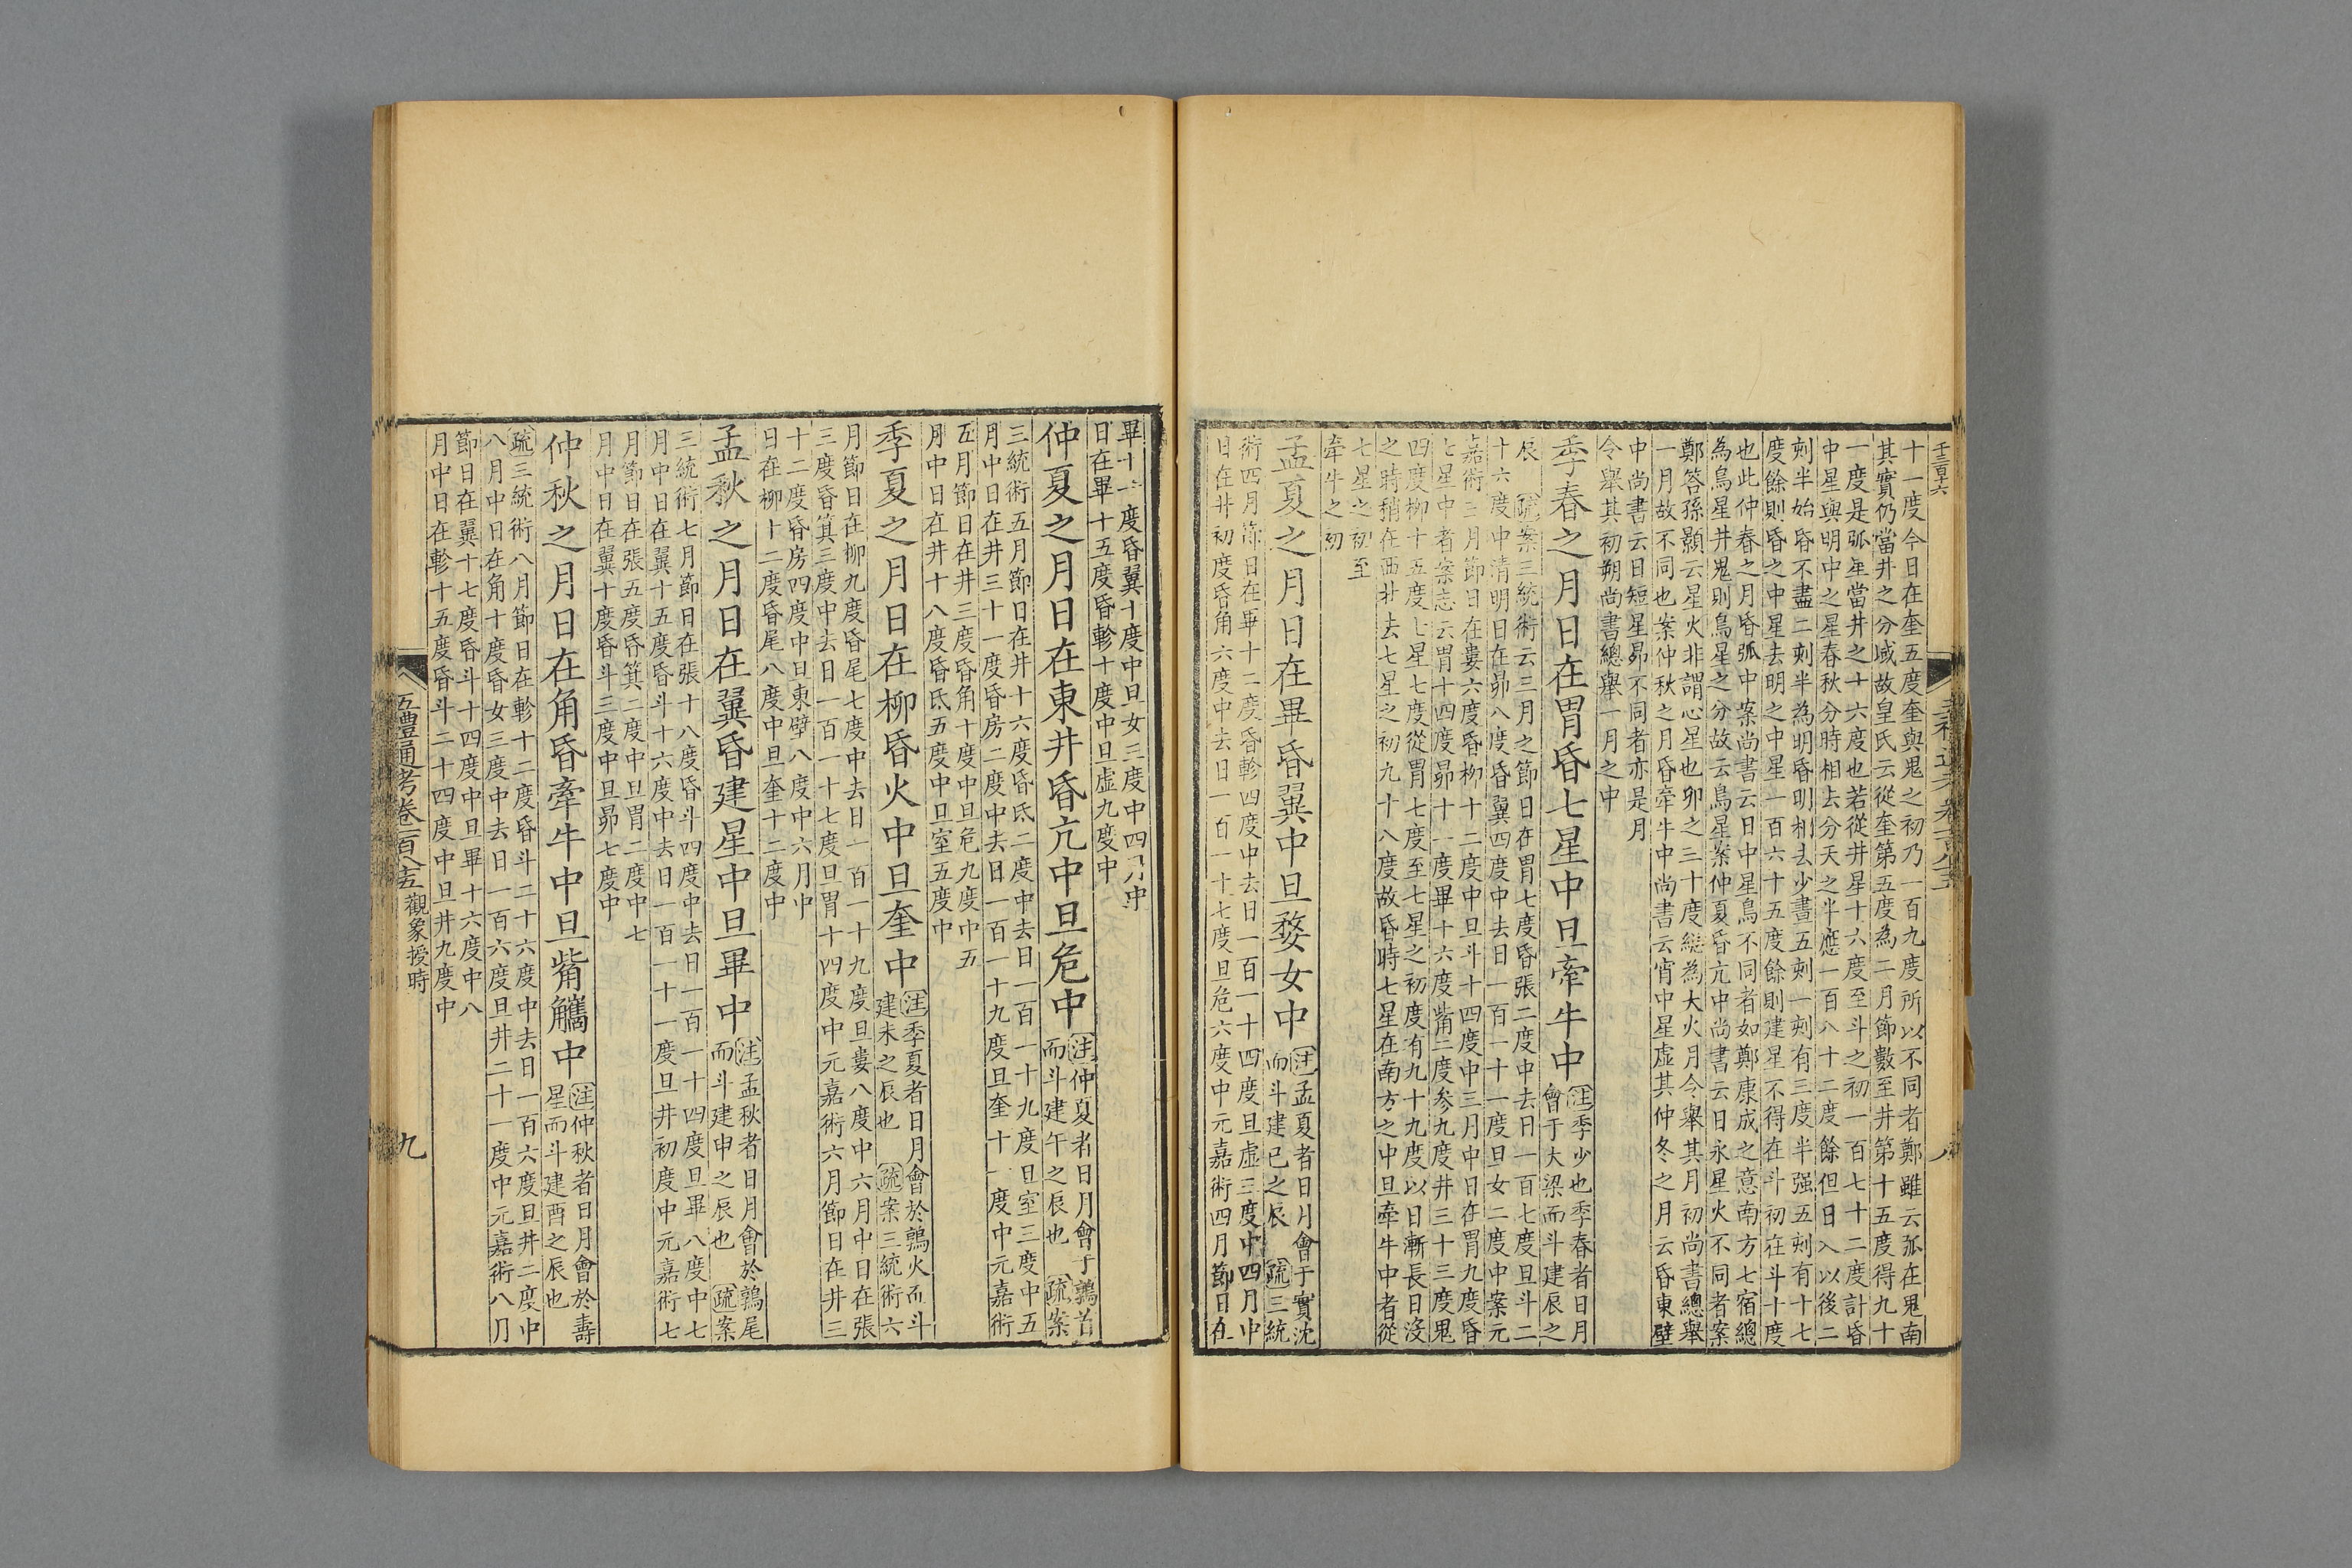 十一度今日在奎五度奎與鬼之初乃一百九度所以不同者鄭雖云弧在鬼南
其實仍當井之分域故皇氏云從奎第五度為二月節數至井第十五度得九十
一度是弧星當井之十六度也若從井星十六度至斗之初一百七十二度計昏
中星與明中之星春秋分時相去分天之半應一百八十二度餘但日入以後二
刻半始昏不盡二刻半為明昏明相去少晝五刻一刻有三度半强五刻有十七
度餘則昏之中星去明之中星一百六十五度餘則建星不得在斗初在斗十度
也此仲春之月昏弧中案尚書云日中星鳥不同者如鄭康成之意南方七宿總
為鳥星井鬼則鳥星之分故云鳥星案仲夏昏亢中尚書云日永星火不同者案
鄭答孫顥云星火非謂心星也卯之三十度總為大火月令舉其月初尚書總舉
一月故不同也案仲秋之月昏牽牛中尚書云宵中星虛其仲冬之月云昏東壁
中尚書云日短星昴不同者亦是月
令舉其初朔尚書總舉一月之中
季春之月日在胃昏七星中旦牽牛中
注季少也季春者日月
會于大梁而斗建辰之
辰 疏案三統術云三月之節日在胃七度昏張二度中去日一百七度旦斗二
十六度中清明日在昴八度昏翼四度中去日一百一十一度旦女二度中案元
嘉術三月節日在婁六度昏柳十二度中旦斗十四度中三月中日在胃九度昏
七星中者案志云胃十四度昴十一度畢十六度觜二度參九度井三十三度鬼
四度柳十五度七星七度從胃七度至七星之初度有九十九度以日漸長日沒
之時稍在西北去七星之初九十八度故昏時七星在南方之中旦牽牛中者從
七星之初至
牽牛之初
孟夏之月日在畢昏翼中旦婺女中
注孟夏者日月會于實沈
而斗建巳之辰 疏三統
術四月節日在畢十二度昏軫四度中去日一百一十四度旦虛三度中四月中
日在井初度昏角六度中去日一百一十七度旦危六度中元嘉術四月節日在
畢十一度昏翼十度中旦女三度中四月中
日在畢十五度昏軫十度中旦虛九度中
仲夏之月日在東井昏亢中旦危中
注仲夏者日月會于鶉首
而斗建午之辰也 疏案
三統術五月節日在井十六度昏氐二度中去日一百一十九度旦室三度中五
月中日在井三十一度昏房二度中去日一百一十九度旦奎十一度中元嘉術
五月節日在井三度昏角十度中旦危九度中五
月中日在井十八度昏氐五度中旦室五度中
季夏之月日在柳昏火中旦奎中
注季夏者日月會於鶉火而斗
建未之辰也 疏案三統術六
月節日在柳九度昏尾七度中去日一百一十九度旦婁八度中六月中日在張
三度昏箕三度中去日一百一十七度旦胃十四度中元嘉術六月節日在井三
十二度昏房四度中旦東壁八度中六月中
日在柳十二度昏尾八度中旦奎十二度中
孟秋之月日在翼昏建星中旦畢中
注孟秋者日月會於鶉尾
而斗建申之辰也 疏案
三統術七月節日在張十八度昏斗四度中去日一百一十四度旦畢八度中七
月中日在翼十五度昏斗十六度中去日一百一十一度旦井初度中元嘉術七
月節日在張五度昏箕二度中旦胃二度中七
月中日在翼十度昏斗三度中旦昴七度中
仲秋之月日在角昏牽牛中旦觜觿中
注仲秋者日月會於壽
星而斗建酉之辰也
疏三統術八月節日在軫十二度昏斗二十六度中去日一百六度旦井二度中
八月中日在角十度昏女三度中去日一百六度旦井二十一度中元嘉術八月
節日在翼十七度昏斗十四度中旦畢十六度中八
月中日在軫十五度昏斗二十四度中旦井九度中
五禮通考卷一百八十五 觀象授時
九